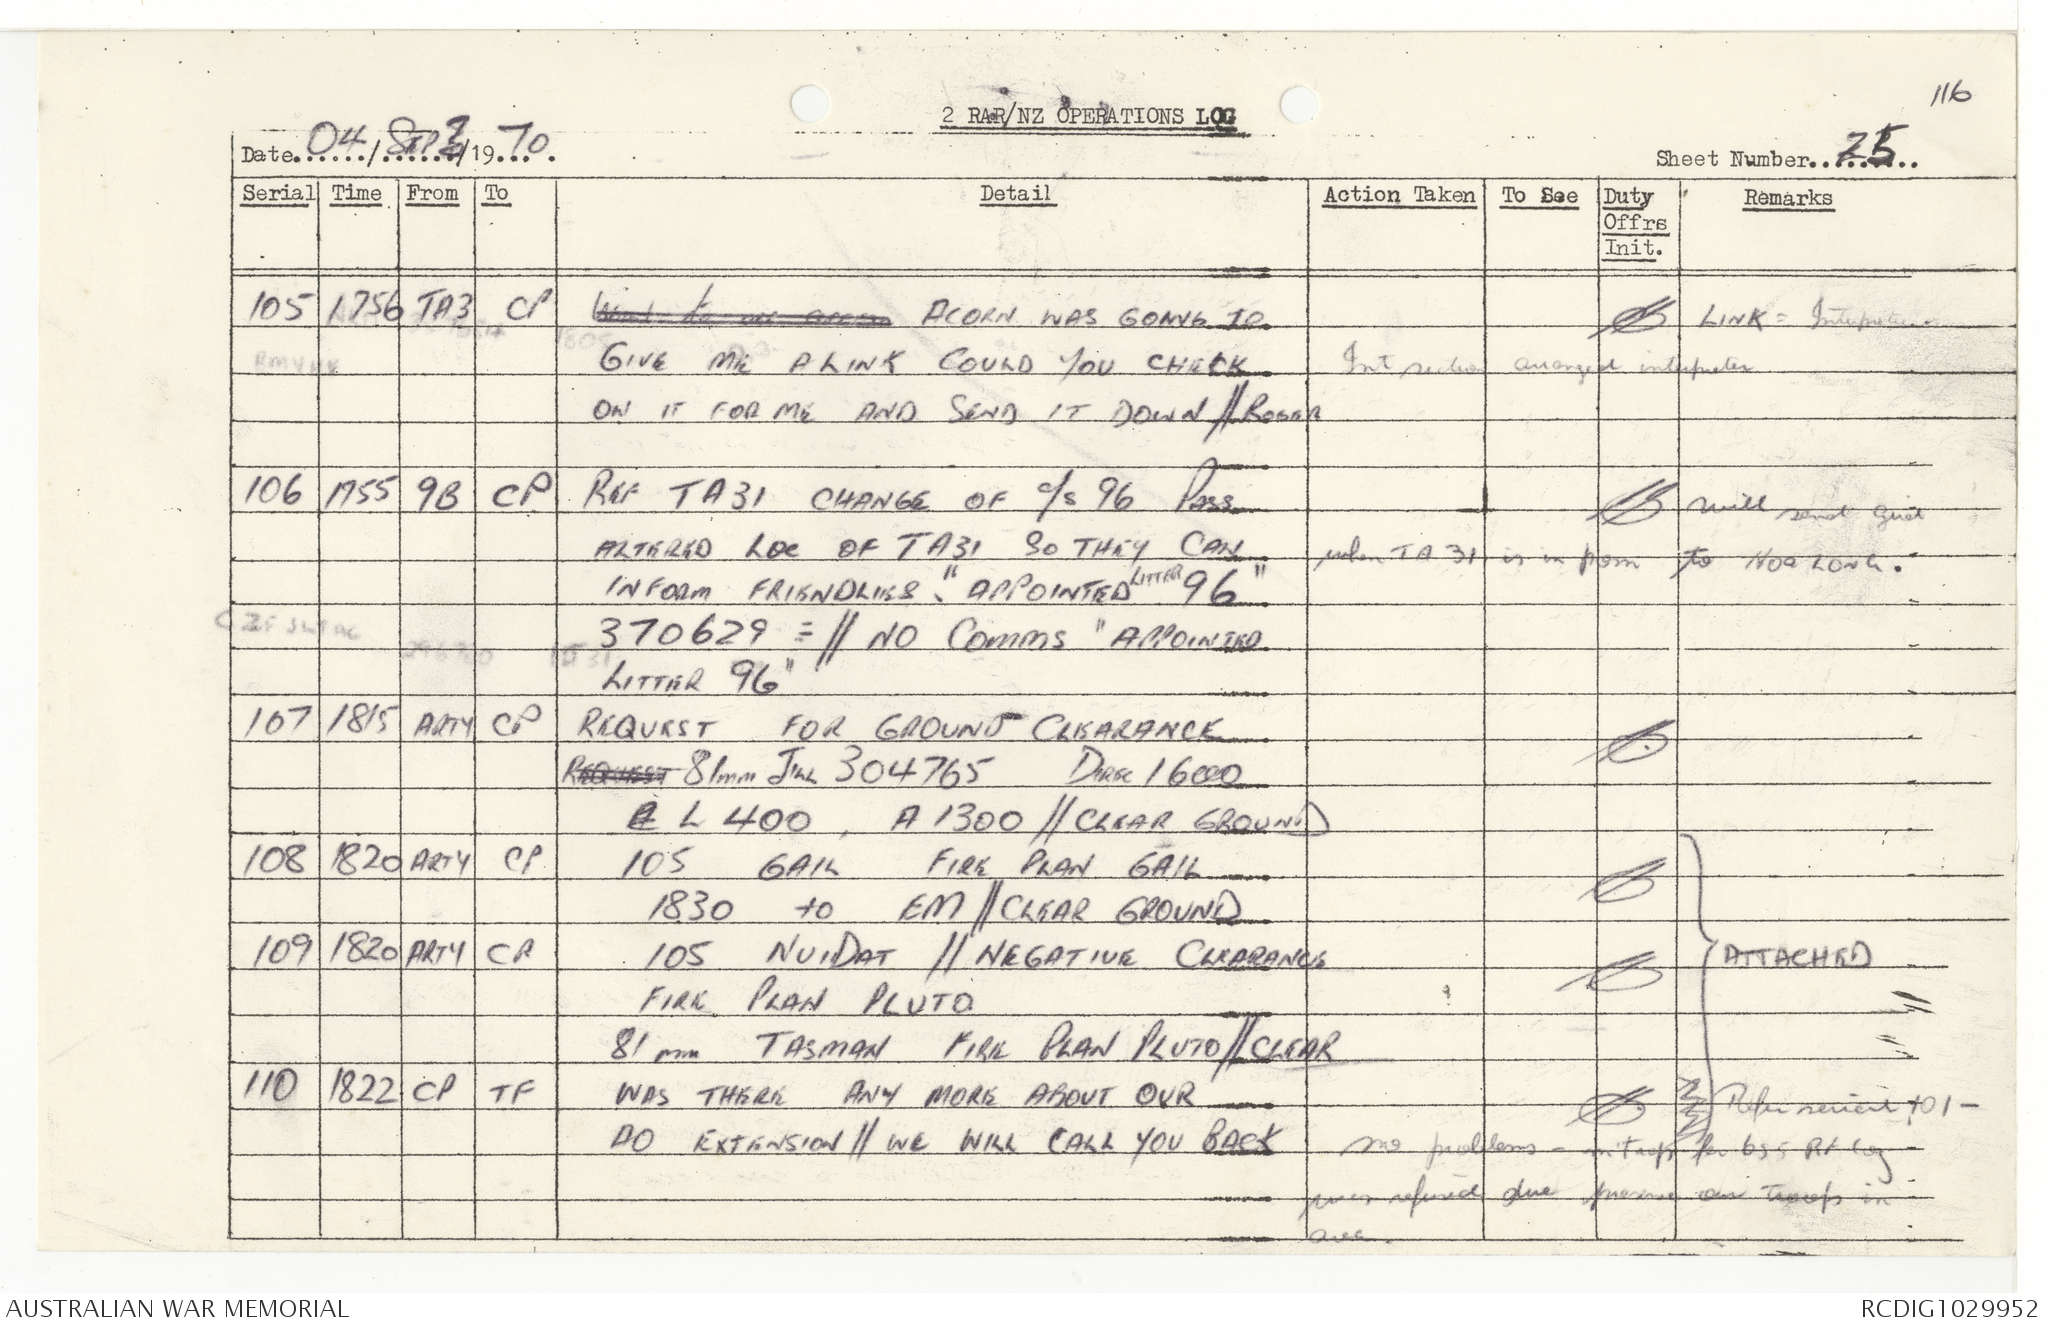 116
2 RAR/NZ OPERATIONS LOG
Date 04 / SEP / 1970.
Sheet Number 25
Serial Time From To Detail Action Taken To See Duty Offrs Init. Remarks
105 1756 TA3 CP ACORN WAS GOING TO LINK =
GIVE ME A LINK COULD YOU CHECK Int section arranged interpreter
ON IT FOR ME AND SEND IT DOWN // ROGER
106 1755 9B CP REF TA31 CHANGE OF C/S 96 PASS will send
ALTERED LOC OF TA31 SO THEY CAN when TA 31 is in to HOA LONG.
INFORM FRIENDLIES. "APPOINTED LITTER 96"
370629 = // NO COMMS "APPOINTED
LITTER 96"
107 1815 ARTY CP REQUEST FOR GROUND CLEARANCE
REQUEST 81mm JILL 304765 DIREC 1600
L 400, A 1300 // CLEAR GROUND
108 1820 ARTY CP 105 GAIL FIRE PLAN GAIL
1830 to EM // CLEAR GROUND
109 1820 ARTY CP 105 NUIDAT // NEGATIVE CLEARANCE ATTACHED
FIRE PLAN PLUTO
81mm TASMAN FIRE PLAN PLUTO // CLEAR
110 1822 CP TF WAS THERE ANY MORE ABOUT OUR Refer 101 -
AO EXTENSION // WE WILL CALL YOU BACK no problems -
was refused due presence own troops in
area.
AUSTRALIAN WAR MEMORIAL
RCDIG1029952